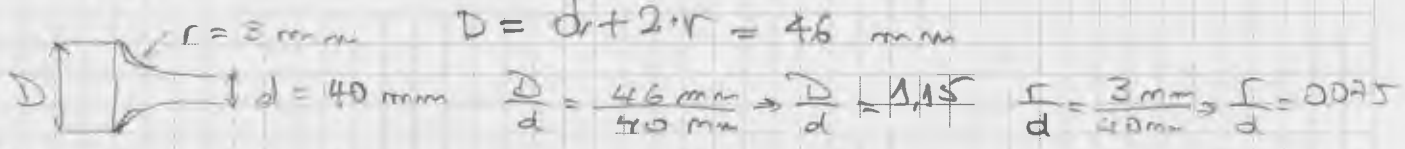 r = 3 mm D = d + 2·r = 46 mm
D d = 40 mm D/d = 46 mm/40 mm ⇒ D/d = 1,15 r/d = 3 mm/40mm ⇒ r/d = 0075